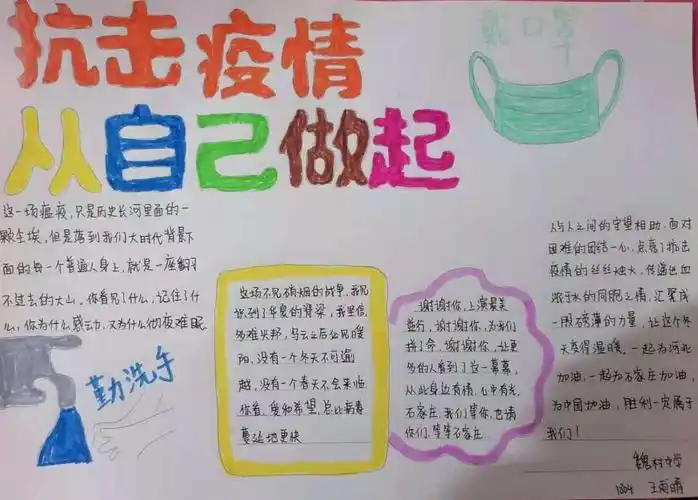 抗击疫情
从自己做起
戴口罩
这一场瘟疫,只是历史长河里面的一
颗尘埃,但是落到我们大时代背景下
面的每一个普通人身上,就是一座翻
不过去的大山。你看见了什么,记住了什
么,你为什么感动,又为什么彻夜难眠
勤洗手
这场不见硝烟的战争,我见
证到了华夏的脊梁,我坚信,
多难兴邦,乌云之后必见暖
阳,没有一个冬天不可逾
越,没有一个春天不会来临
你看,爱和希望,总比病毒
蔓延地更快
谢谢你,上演最美
逆行,谢谢你,为我们
拼了命,谢谢你,让更
多的人看到了这一幕幕,
从此身边有情,心中有光,
石家庄,我们等你,也请
你们,等等石家庄
人与人之间的守望相助,面对
困难的团结一心,点亮了抗击
疫情的丝丝烛火,传递出血
浓于水的同胞之情,汇聚成
一股磅礴的力量,让这个冬
天变得温暖。一起为河北
加油,一起为石家庄加油,
为中国加油,胜利一定属于
我们!
魏村中学
1804 王雨晴